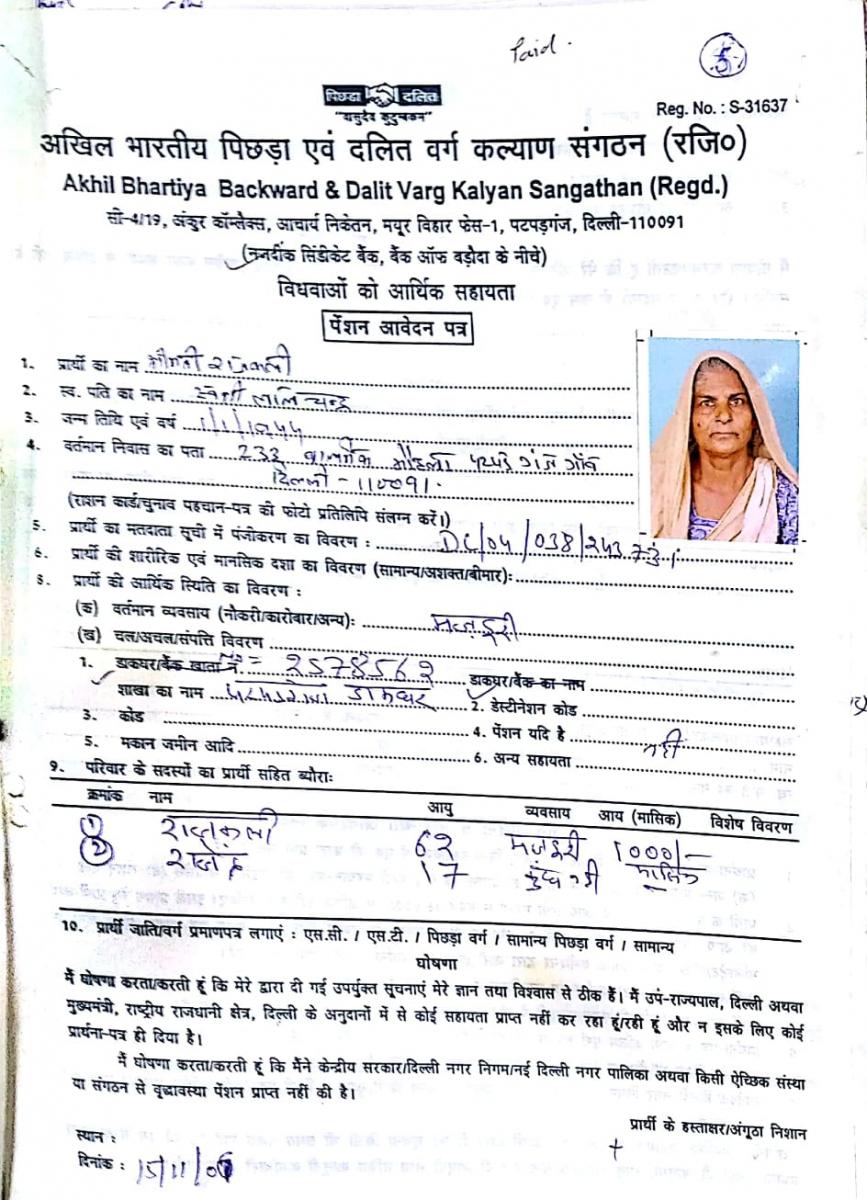 Paid.
5
पिछड़ा दलित
"वासुदेव कुटुम्बकम"
Reg. No. : S-31637
अखिल भारतीय पिछड़ा एवं दलित वर्ग कल्याण संगठन (रजि०)
Akhil Bhartiya Backward & Dalit Varg Kalyan Sangathan (Regd.)
सी-4/19, अंकुर कॉम्लैक्स, आचार्य निकेतन, मयूर विहार फेस-1, पटपड़गंज, दिल्ली-110091
(नजदीक सिंडीकेट बैंक, बैंक ऑफ बड़ौदा के नीचे)
विधवाओं को आर्थिक सहायता
पेंशन आवेदन पत्र
1. प्रार्थी का नाम श्रीमती राजकली
2. स्व. पति का नाम स्व श्री लालचन्द्र
3. जन्म तिथि एवं वर्ष 1/1/1944
4. वर्तमान निवास का पता 233 बाल्मीक मौहल्ला पटपड़गंज गाँव
दिल्ली-110091.
(राशन कार्ड/चुनाव पहचान-पत्र की फोटो प्रतिलिपि संलग्न करें।)
5. प्रार्थी का मतदाता सूची में पंजीकरण का विवरण : DL/04/038/243731
6. प्रार्थी की शारीरिक एवं मानसिक दशा का विवरण (सामान्य/अशक्त/बीमार):
8. प्रार्थी की आर्थिक स्थिति का विवरण :
(क) वर्तमान व्यवसाय (नौकरी/कारोबार/अन्य): मजदूरी
(ख) चल/अचल/संपत्ति विवरण
1. डाकघर/बैंक खाता नं No = 2578562 डाकघर/बैंक का नाम
शाखा का नाम पटपड़गंज डाकघर 2. डेस्टीनेशन कोड
3. कोड 4. पेंशन यदि है नहीं
5. मकान जमीन आदि 6. अन्य सहायता
9. परिवार के सदस्यों का प्रार्थी सहित ब्यौराः
क्रमांक नाम आयु व्यवसाय आय (मासिक) विशेष विवरण
1 राजकली 62 मजदूरी 1000/-
2 17 कुछ नही मासिक
10. प्रार्थी जाति/वर्ग प्रमाणपत्र लगाएं : एस.सी. / एस.टी. / पिछड़ा वर्ग / सामान्य पिछड़ा वर्ग / सामान्य
घोषणा
मैं घोषणा करता/करती हूं कि मेरे द्वारा दी गई उपर्युक्त सूंचनाएं मेरे ज्ञान तथा विश्वास से ठीक हैं। मैं उप-राज्यपाल, दिल्ली अथवा
मुख्यमंत्री, राष्ट्रीय राजधानी क्षेत्र, दिल्ली के अनुदानों में से कोई सहायता प्राप्त नहीं कर रहा हूं/रही हूं और न इसके लिए कोई
प्रार्थना-पत्र ही दिया है।
मैं घोषणा करता/करती हूं कि मैंने केन्द्रीय सरकार/दिल्ली नगर निगम/नई दिल्ली नगर पालिका अथवा किसी ऐच्छिक संस्था
या संगठन से वृद्धावस्था पेंशन प्राप्त नहीं की है।
प्रार्थी के हस्ताक्षर/अंगूठा निशान
स्थान :
दिनांक : 15/11/06